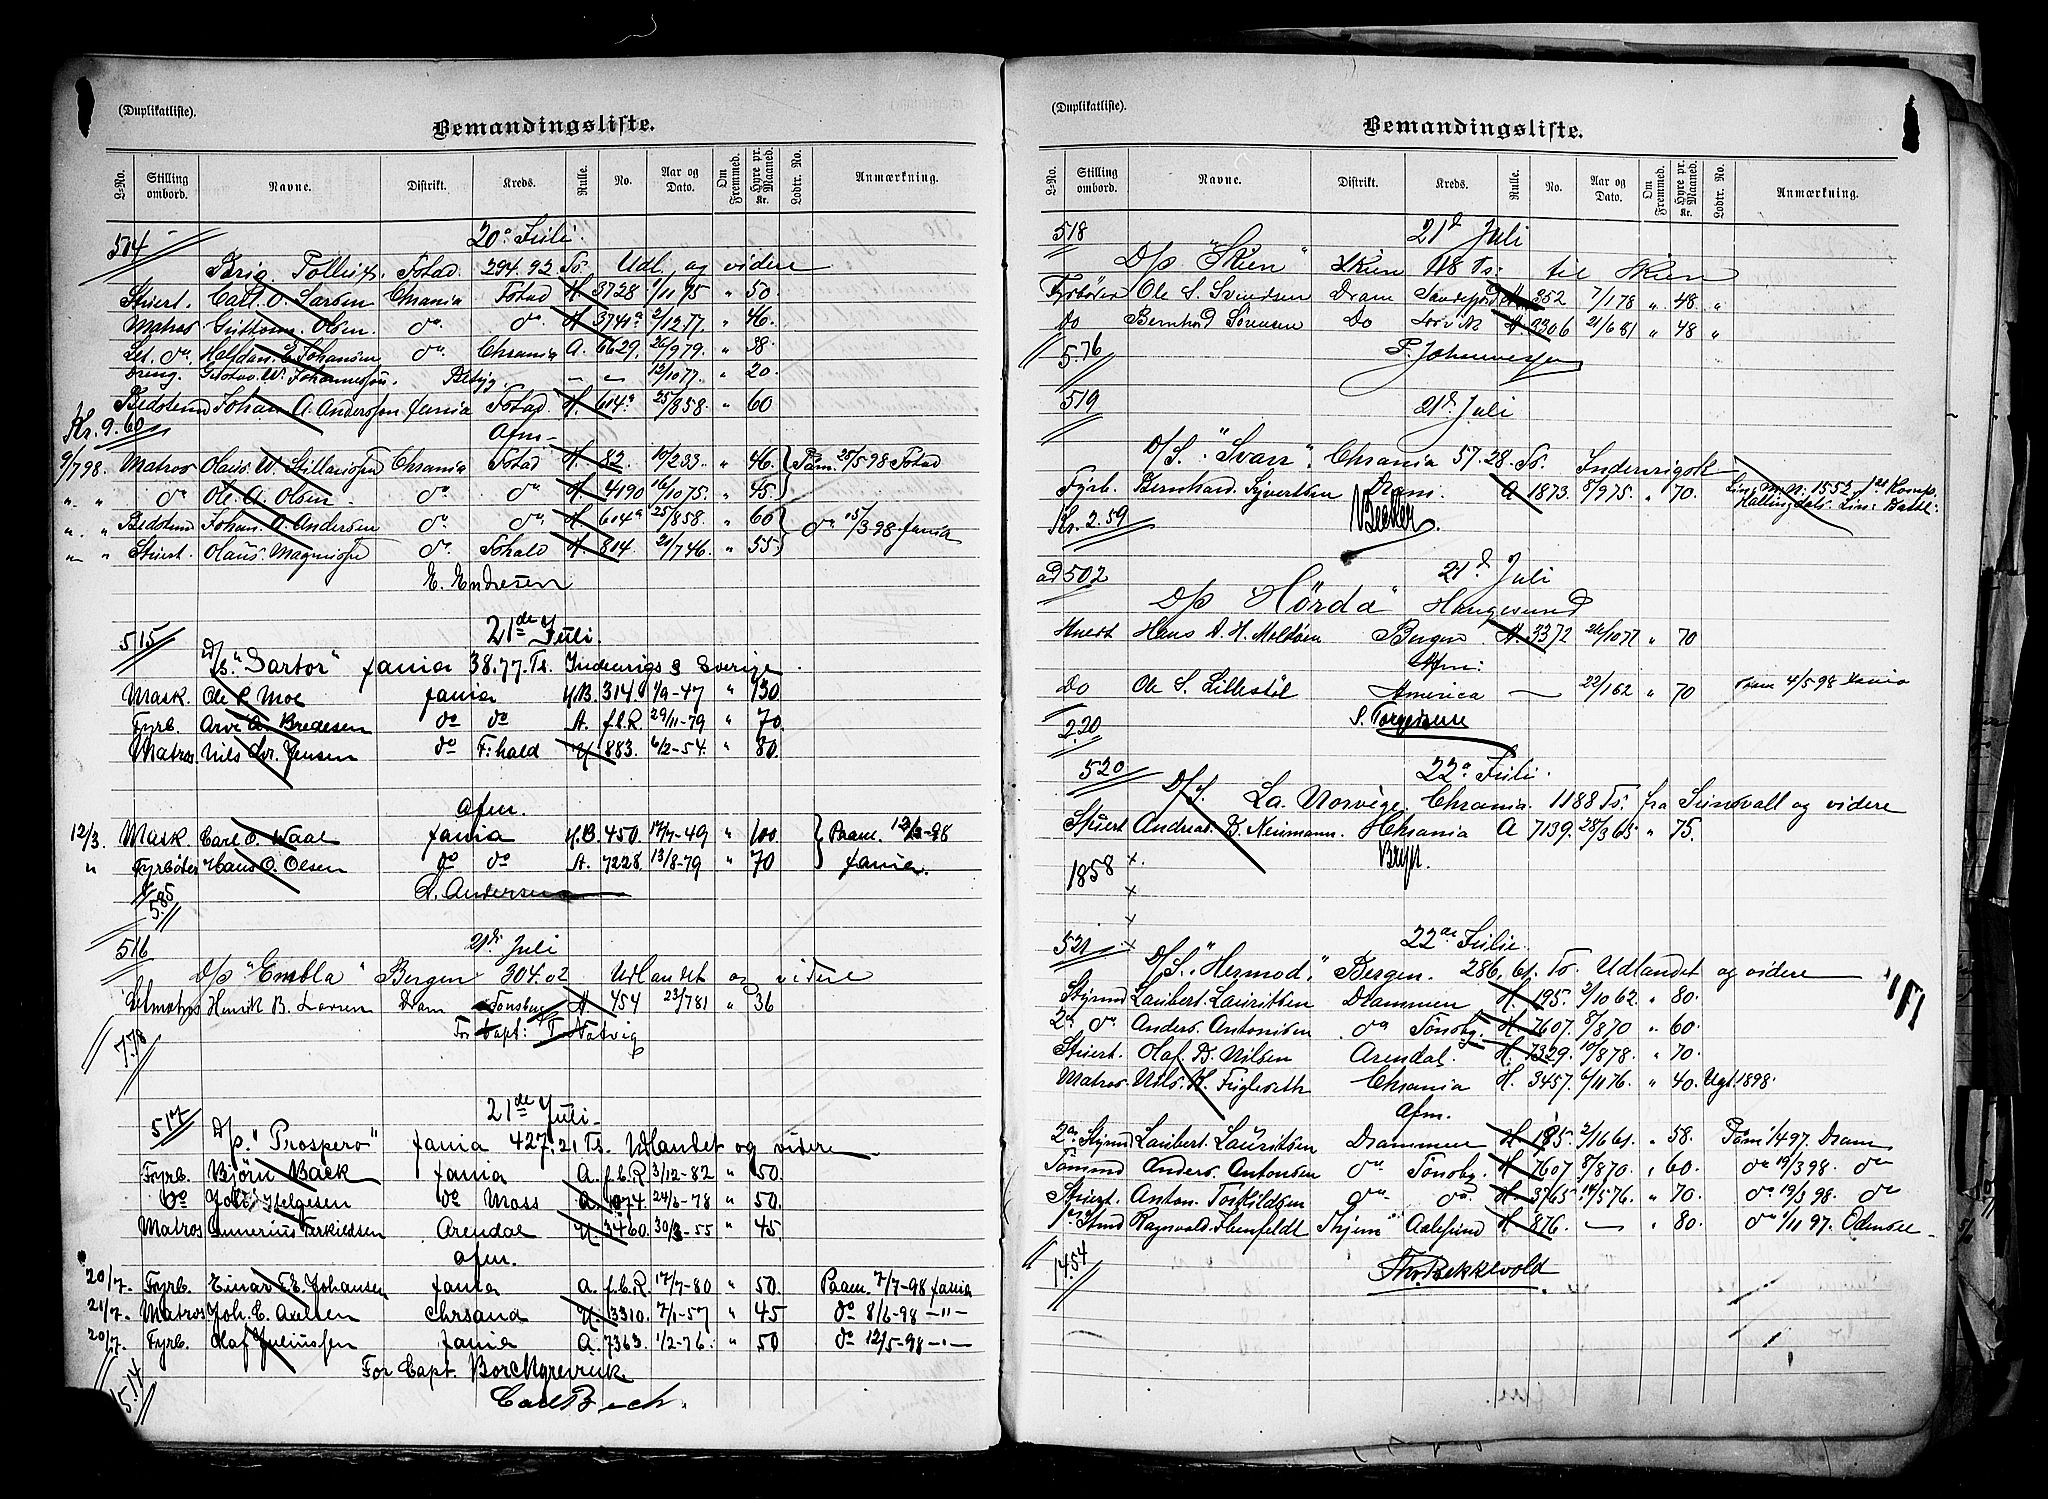 (Duplikatliste).
Bemandingsliste.
L-No. Stilling ombord. Navne. Distrikt. Kreds. Rulle. No. Aar og Dato. Om Fremmed. Hyre pr. Maaned. Kr. Lodtr. No. Anmærkning.
514 20de Juli.
Brig Fotad 294.92 Ts. Udl. og videre
Stuert. Carl O. Larsen Chrania Fstad H. 3728 1/11 75 " 50
Matros Guttorm Olsen. do. do. A 3741a 2/12 77. " 46.
Let. do. Halfdan E. Johansen do. Chrania A. 6629. 26/9 79. " 38
Dreng. Gustav W. Johannessen. Betyg. — — 12/10 77. " 20.
Bedstemd Johan A. Anderssen fania Fstad. H. 604a 25/8 58. " 60
Kr. 9.60 Afm-
9/7 98. Matros Olaus W. Chrania Fstad H. 82. 10/2 33. " 46. Paam. 25/5 98 Fstad
" " do Ole A. Olsen do. do. H 4190 16/10 75. " 45.
" " Bedstemd Johan A. Andersen do. do. H 604a 25/8 58. " 60 do 15/3 98 fania
" " Stuert. Olaus Magnussen do. Fshald H. 804. 21/7 46. " 55
E. Endresen
515 21de Juli.
D/s. "Sartor" fania 38.77. Ts. Indenrigs & Sverige
Mask. Ole P. Moe fania H.B. 314. 1/9-47 " 130
Fyrb. Arve A. Bredesen do do A. f.b.R. 29/11-79 " 70.
Matros. Nils Chr. Jensen do F:hald H 883. 6/2-54. " 80.
afm.
12/3. Mask. Carl O. Waal fania H.B. 450. 17/7-49 " 100 Paam. 12/3-98
" Fyrbøter Hans O. Olsen do do A. 7228. 13/8-79 " 70 fania.
5.85 A. Andersen
516 21de Juli
D/p "Embla" Bergen 304.02 Udlandet og videre
Henrik B. Larsen Dram Tønsberg A. 454 23/7 81 " 36
7.78 For Capt: T. Natvig
517 21de Juli.
D/p. "Prospero" fania 427.21 Ts. Udlandet og videre
Fyrb. Bjørn Back fania A. f.b.R. 3/12-82 " 50.
Do Joh. Helgesen do Moss A. 1074. 24/6-78 " 50.
Matros Gunerius Terkildsen Arendal H. 3460. 30/3-55 " 45.
afm.
20/7. Fyrb. Einar E. Johansen fania A. f.b.R. 17/7-80 " 50. Paam. 7/7-98 fania
21/7. Matros Joh. C. Aalsen Chrsand H. 3310. 7/1-57 " 45 do 8/6-98 —"—
20/7. Fyrb. Olaf Juliussen fania A. 7363. 1/2-76. " 50 do 12/5-98 —"—
15.14 For Capt. Borchgrevink
Carl Bech.
(Duplikatliste).
Bemandingsliste.
L-No. Stilling ombord. Navne. Distrikt. Kreds. Rulle. No. Aar og Dato. Om Fremmed. Hyre pr. Maaned. Kr. Lodtr. No. Anmærkning.
518 21de Juli
D/p "Skien" Skien 118 Ts: til Skien
Fyrbøter Ole S. Svendsen Dram Sandefjord 352 7/1 78 " 48 "
Do Bernhard Sørensen Do Larvik A. 3306 21/6 81 " 48 "
5.76 P. Johannessen
519 21de Juli
D/S. "Svarr". Chrania 57.28 Ts. Indenrigsk
Fyrb. Bernhard Syvertsen Dram. A 1873. 8/9 75. " 70. Lin: M N: 1552, 1ste Komp. Hallingdals. Lin: Battl:
Kr. 2.59 Becker
ad 502 21de Juli
D/p "Hørda" Haugesund
Stuert Hans A. H. Meltsen Bergen A. 3372 26/10 77 " 70
Afm:
Do Ole S. Lillestøl America — 22/1 62 " 70 Paam 4/5 98 Xania
2.20 S. Torgersen
520 22de Juli.
D/S. La Norvège. Chrania. 1188 Ts. fra Sundsvall og videre
Stuert Andreas D. Neumann. Chrania A 7139. 28/3 65 " 75.
1858 Bryn.
521 22de Julie.
D/S. "Hermod," Bergen. 286,61. Ts. Udlandet og videre
Styrmd Laubert. Lauritsen Drammen H. 195. 2/10 62. " 80.
2. do Anders. Antonisen do Tønsbg. H. 7607. 8/8 70 " 60.
Stuert. Olaf. D. Nilsen Arendal. H. 7329. 10/8 78. " 70.
Matros. Nils. K. Fuglseth Chrania H. 3457. 6/11 76. " 40. Ugt. 1898.
Afm.
2den Styrmd Laubert. Lauritsen Drammen H 195. 2/16 61. " 58. Paam 1/4 97. Dram
Tømmd Anders. Antonsen do Tønsby. H 7607 8/8 70. " 60. do 19/3 98. do
Stuert. Anton. Torkildsen do. do. H. 3765 14/5 76. " 70. do 19/3 98. do
1ste Stmd Ragnvald. Thjem Aalesund H 876. — " 80. do 1/11 97. Odense
14.54 Thv. Bekkevold
151